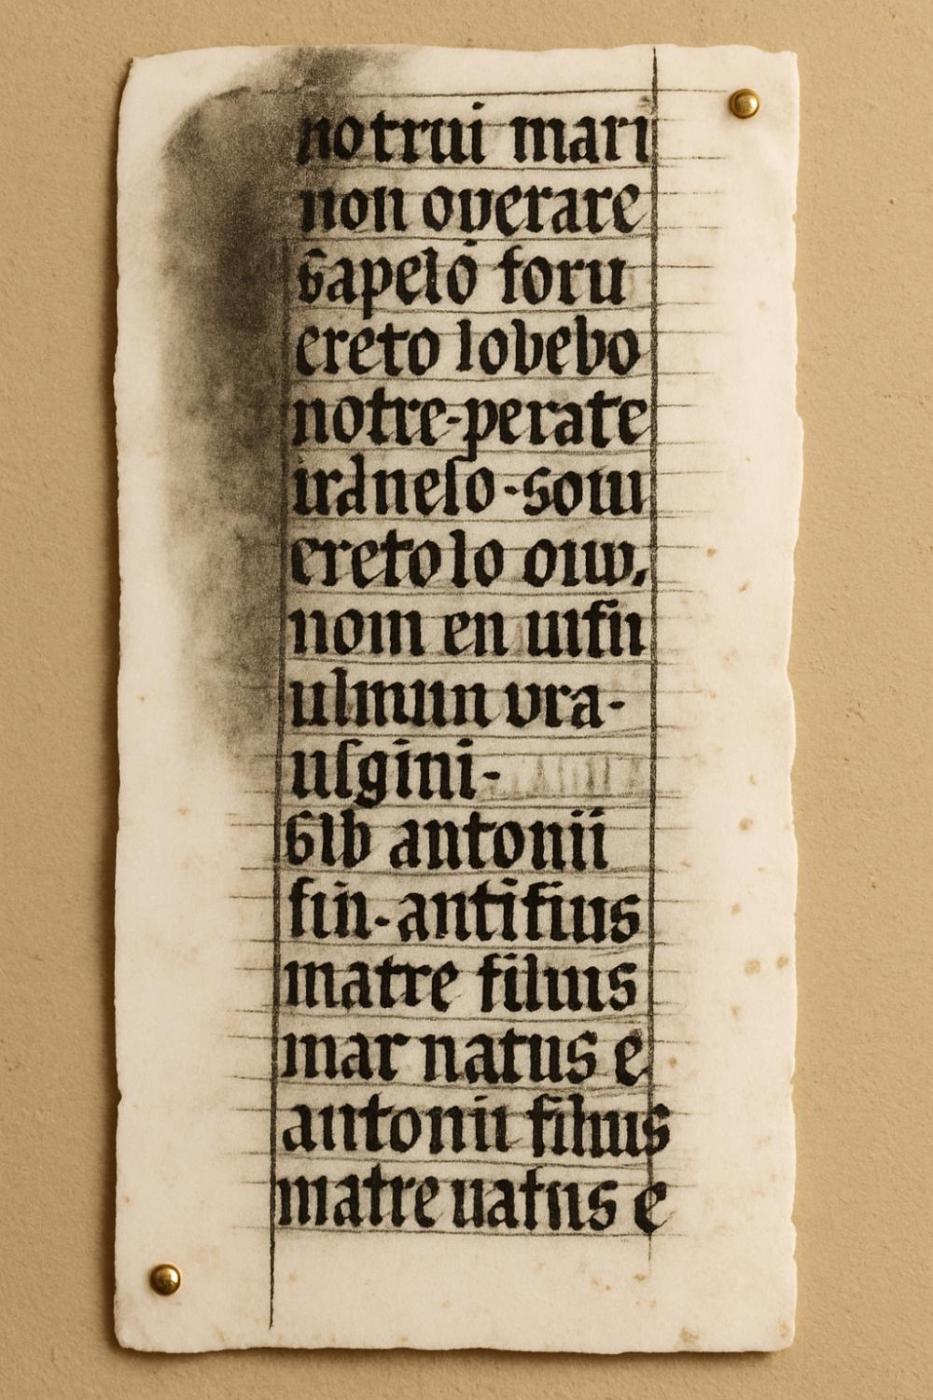 notrui mari
non overare
gapelo foru
ereto lobebo
notre-perate
irdneſo-som
ereto lo ouw.
nom en uifu
ulmun vra-
uſgini-
Glb antonii
fin-antifius
matre filuis
mar natus e
antonii filius
matre natus e